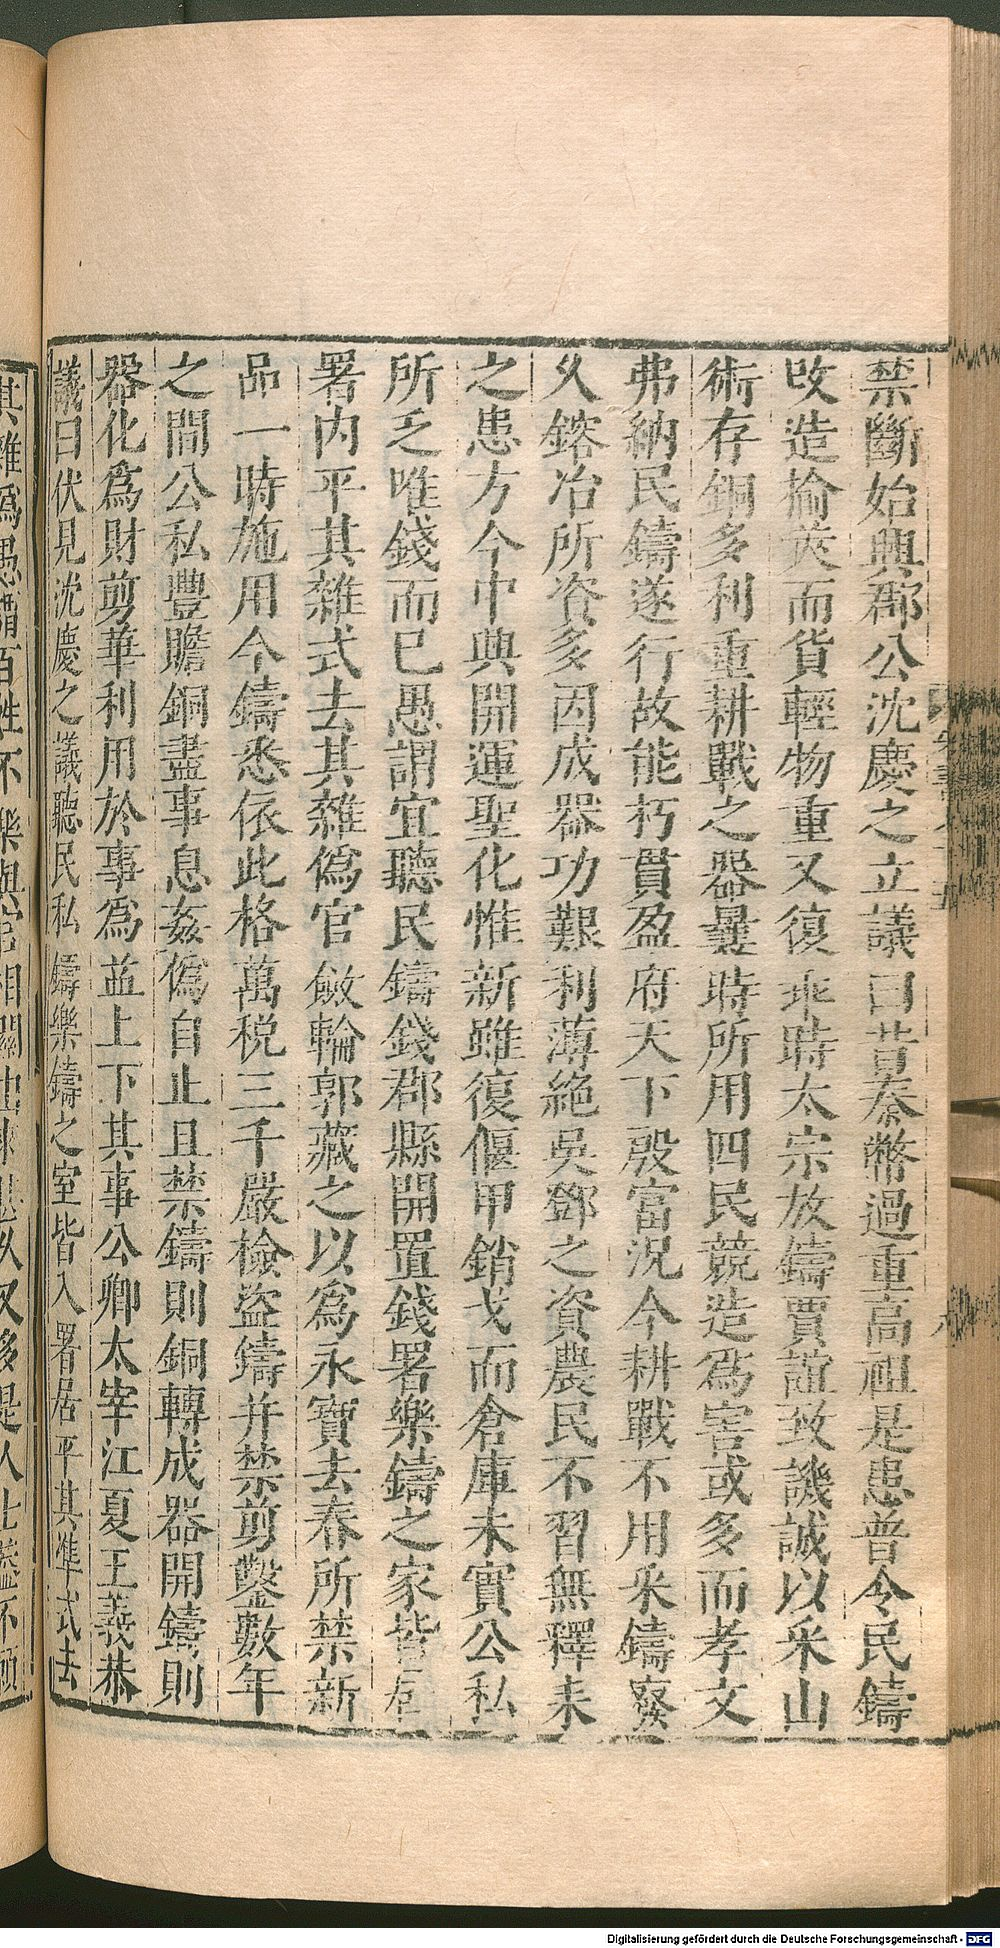 禁斷始興郡公沈慶之立議曰昔秦幣過重高祖是患普令民鑄
改造揄莢而貨輕物重又復乖時太宗放鑄賈誼致譏誠以采山
術存銅多利重耕戰之器曩時所用四民競造為害或多而孝文
弗納民鑄遂行故能朽貫盈府天下殷富況今耕戰不用采鑄廢
久鎔冶所資多因成器功艱利薄絕吳鄧之資農民不習無釋耒
之患方今中興開運聖化惟新雖復偃甲銷戈而倉庫未實公私
所乏唯錢而已愚謂宜聽民鑄錢郡縣開置錢署樂鑄之家皆居
署內平其雜式去其雜偽官斂輪郭藏之以為永寶去春所禁新
品一時施用今鑄悉依此格萬税三千嚴檢盜鑄并禁剪鑿數年
之間公私豐贍銅盡事息姦偽自止且禁鑄則銅轉成器開鑄則
器化為財剪華利用於事為益上下其事公卿太宰江夏王義恭
議曰伏見沈慶之議聽民私鑄樂鑄之室皆入署居平其準式去
其雜為愚謂百姓不樂與官相關由來甚久又多是人士蓋不願
Digitalisierung gefördert durch die Deutsche Forschungsgemeinschaft - DFG